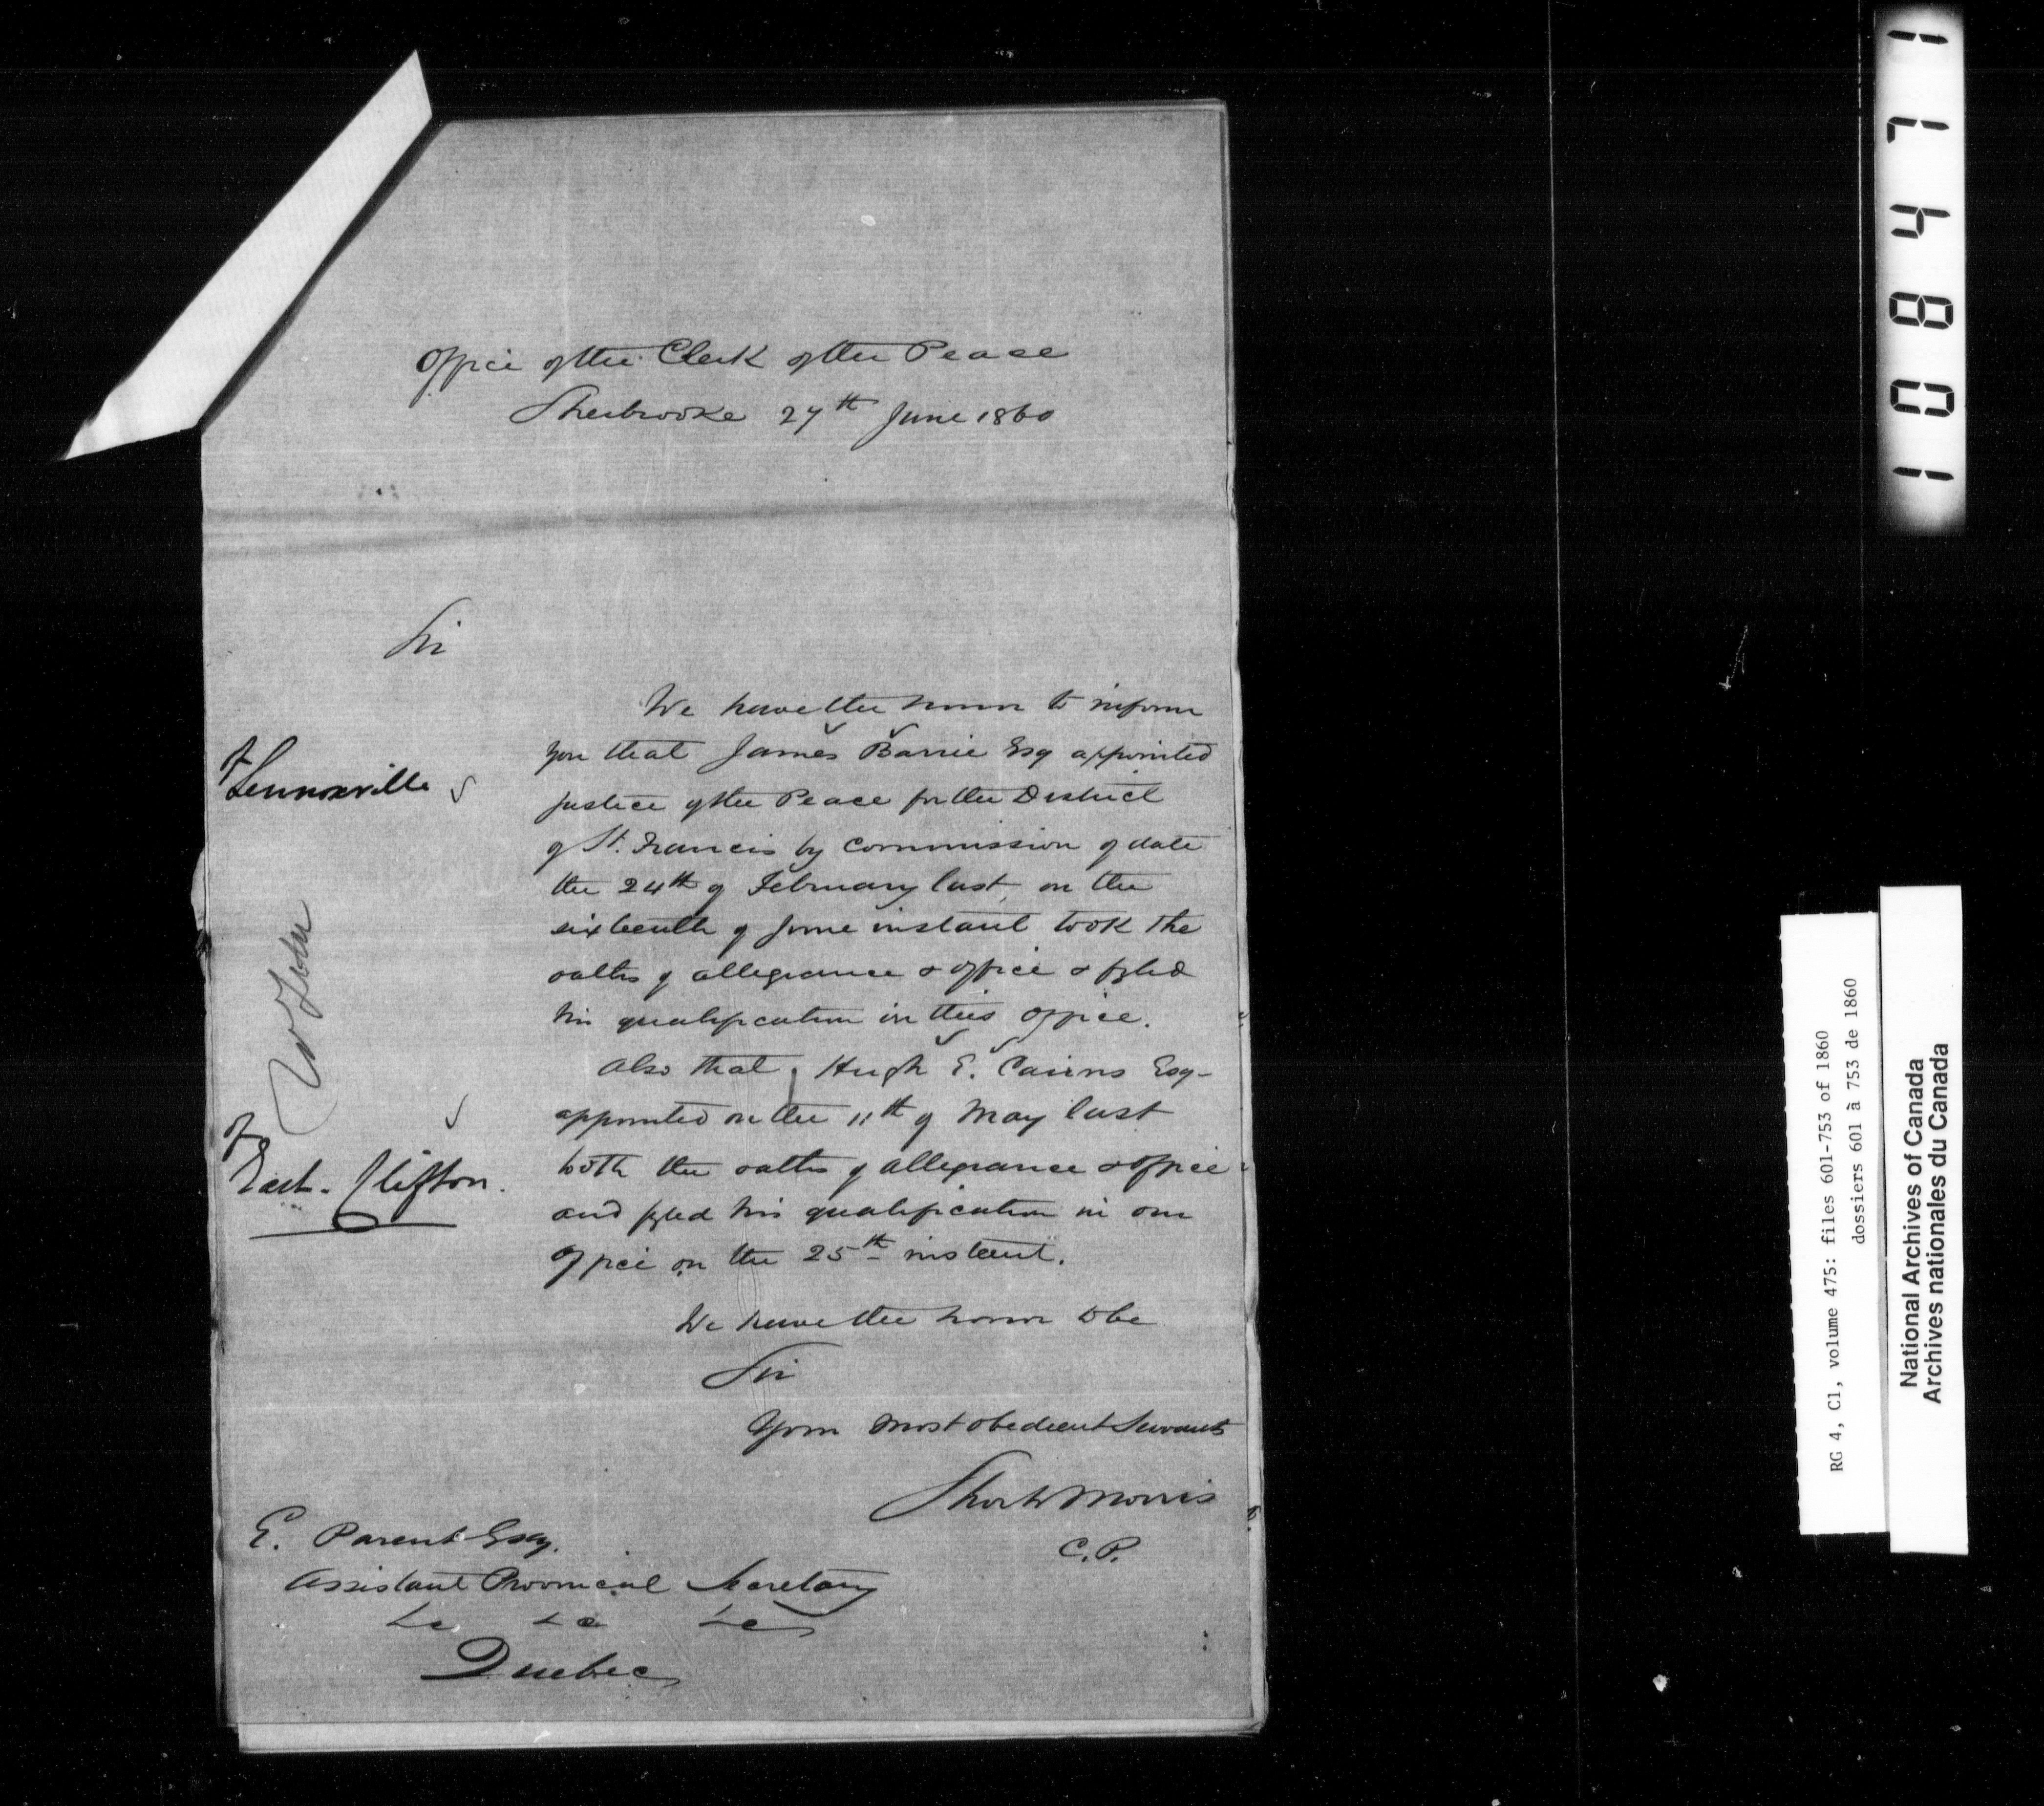 Office of the Clerk of the Peace
Sherbrooke 27th June 1860
Sir
We have the honor to inform
you that James Barrie Esq appointed
Justice of the Peace for the District
of St. Francis by Commission of date
the 24th of February last, on the
sixteenth of June instant took the
oaths of allegiance & office & fyled
his qualification in this office.
Also that, Hugh E. Cairns Esq-
appointed on the 11th of May last
took the oaths of allegiance & office
and fyled his qualification in our
office on the 25th instant.
We have the honor to be
Sir
Your most obedient Servants
Short & Morris
C.P.
E. Parent Esq.
Assistant Provincial Secretary
&c &c &c
Quebec
of
Lennoxville
of
East. Clifton.
108471
RG 4, C1, volume 475: files 601-753 of 1860
dossiers 601 à 753 de 1860
National Archives of Canada
Archives nationales du Canada